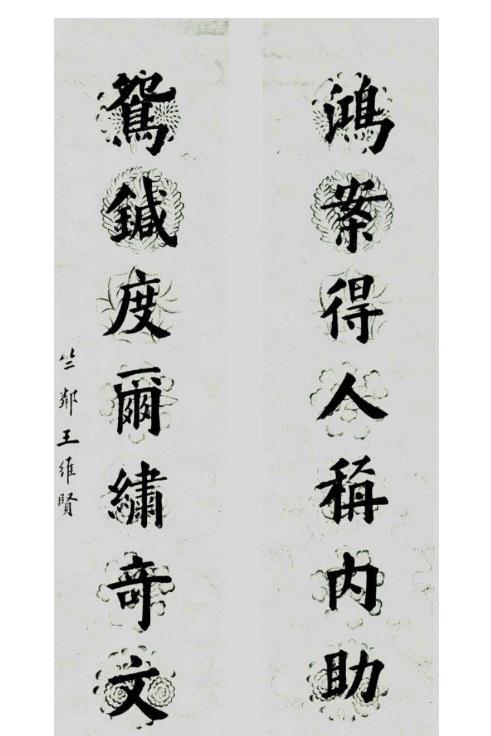 鴻案得人稱内助
鴛鍼度爾繡奇文
竺鄰王維賢